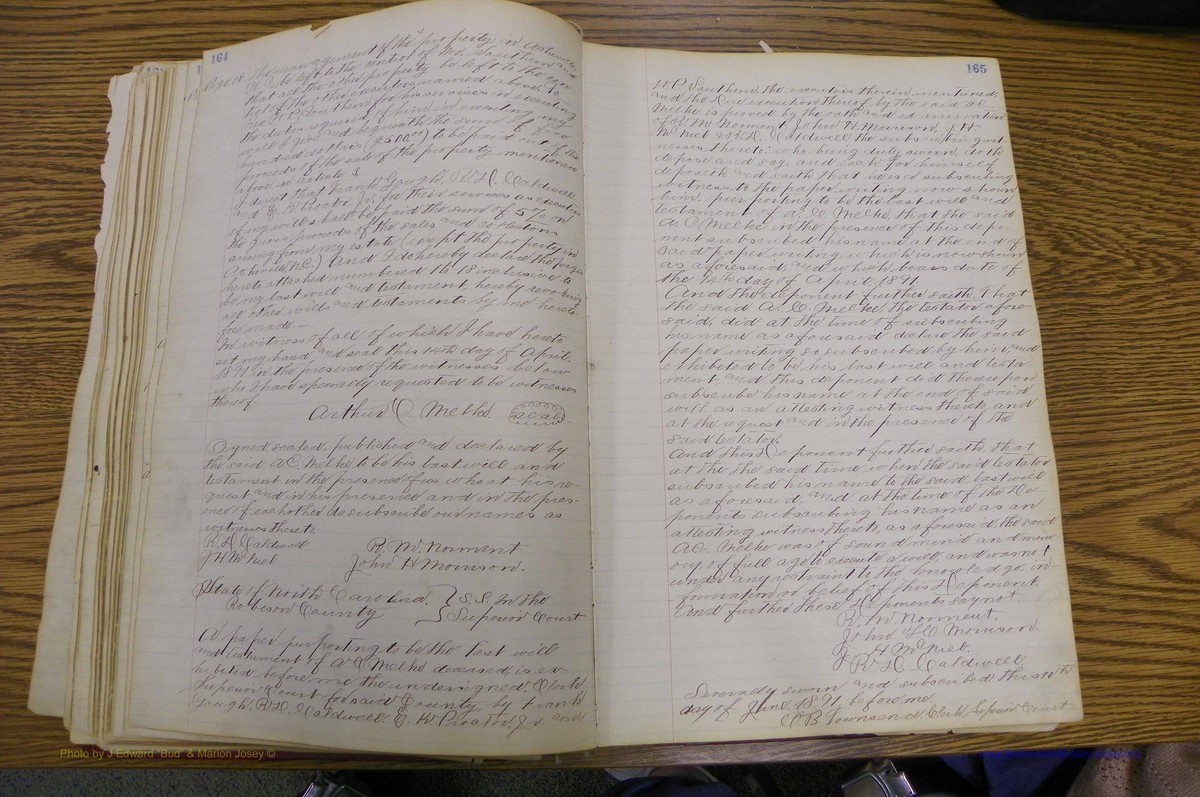 164
Page 18 the management of the property in Asheville
N.C. be left to the control of Mrs. Southern and
that all the other property be left to the con-
trol of the other executors named above. To
W. P. Southern for his services in executing
the duties required of him in executing my
will I give and bequeath the sum of five
hundred dollars ($500.00) to be paid out of the
proceeds of the sale of the property mentioned
afore in article 8
I direct that Frank Gough, R. H. Caldwell,
and E. K. Proctor Jr. for their services as executors
of my will shall be paid the sum of 5 % on
the gross proceeds of the sales and collections
arising from my estate (except the property in
Asheville N.C.) And I do hereby declare the pages
hereto attached numbered 1 to 18 inclusive to
be my last will and testament, hereby revoking
all other wills and testaments by me hereto-
fore made.—
In witness of all of which I have hereto
set my hand and seal this 14th day of April
1891 in the presence of the witnesses below
who I have specially requested to be witnesses
thereof
Arthur C. Melke seal
Signed sealed, published and declared by
the said A C. Melke to be his last will and
testament in the presence of us who at his re-
quest and in his presence and in the pres-
ence of each other do subscribe our names as
witness thereto
R. H. Caldwell R. M. Norment
J H McNiel John H Morrison.
State of North Carolina. } S.S. In the
Robeson County } Superior Court
A paper purporting to be the last will
and testament of A C Melke deceased, is ex-
hibited before me the undersigned Clerk
Superior Court for said County by Frank
Gough, R. H. Caldwell, E. K. Proctor, Jr and
165
W. P. Southern, the executors therein mentioned
and the due execution thereof by the said A C
Melke is proved by the oath and examination
of R. M. Norment, John H. Morrison, J. H.
McNiel & R. H. Caldwell the subscribing wit-
nesses thereto: who being duly sworn doth
depose and say and each for himself
deposeth and saith that he is a subscribing
witness to the paper writing now shown
him purporting to be the last will and
testament of A. C Melke, that the said
A. C Melke in the presence of this depo-
nent subscribed his name at the end of
said paper writing which is now shown
as aforesaid, and which bears date of
the 14th day of April 1891
And the deponent further saith That
the said A. C. Melke, the testator afore-
said, did at the time of subscribing
his name as aforesaid declare the said
paper writing so subscribed by him, and
exhibited to be his last will and testa-
ment, and this deponent did thereupon
subscribe his name at the end of said
will as an attesting witness thereto, and
at the request and in the presence of the
said testator.
And this deponent further saith that
at the the said time when the said testator
subscribed his name to the said last will
as aforesaid, and at the time of the de-
ponents subscribing his name as an
attesting witness thereto, as aforesaid, the said
A C. Melke was of sound mind and mem
ory of full age to execute a will, and was not
under any restraint to the knowledge, in-
formation or belief of this deponent
And further these deponents say not
R. M. Norment.
John H Morrison
J. H McNiel.
R. H. Caldwell
Severally sworn and subscribed this 10th
day of June 1891, before me
C. B. Townsend Clerk Superior Court
Photo by J Edward "Bud" & Marion Josey ©